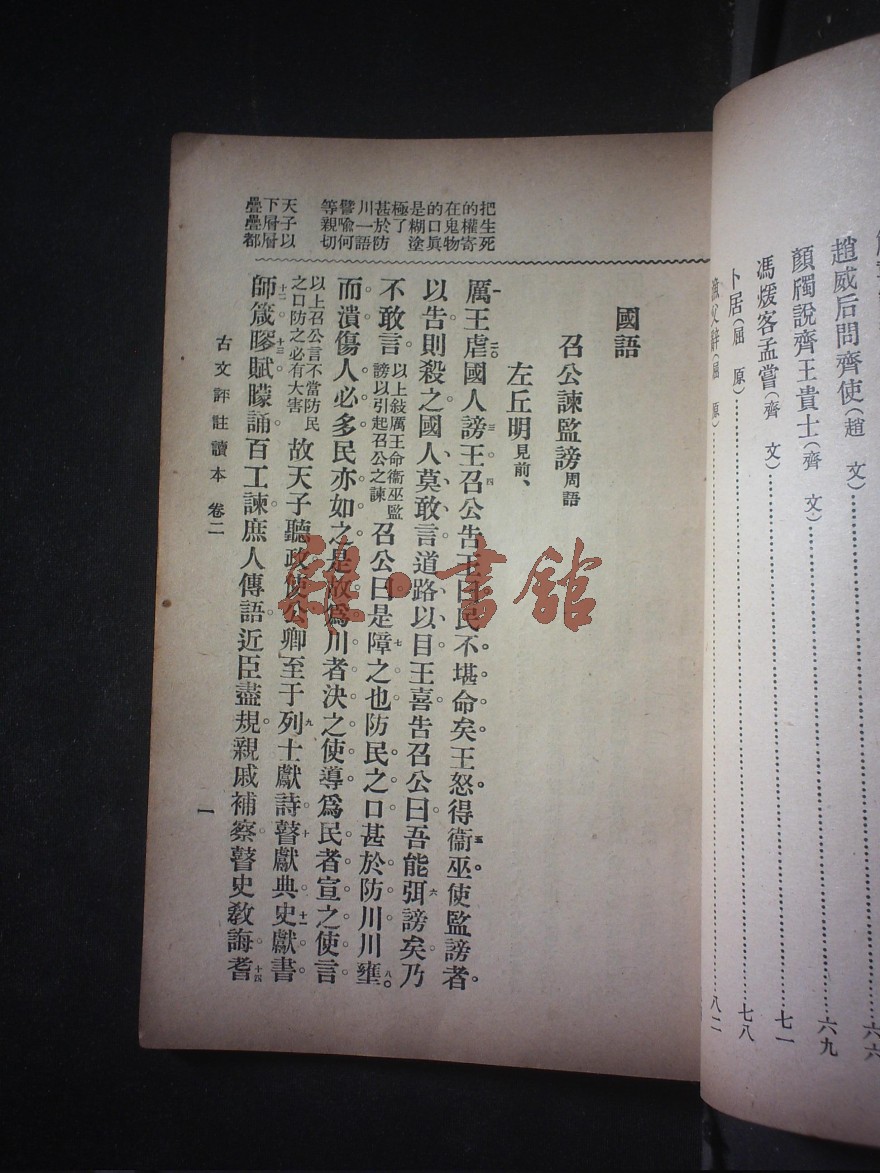 趙威后問齊使(趙 文)……六六
顏斶說齊王貴士(齊 文)……六九
馮煖客孟嘗(齊 文)……七一
卜居(屈 原)……七八
漁父辭(屈 原)……八二
把生死
的權寄
在鬼物
的口真
是糊塗
極了
甚於防
川一語
譬喻何
等親切
天子以
下層層
疊疊都
國語
召公諫監謗周語
左丘明見前、
一厲王虐二國人謗三王召四公告王曰民不堪命矣王怒得衞五巫使監謗者
以告則殺之國人莫敢言道路以目王喜告召公曰吾能弭六謗矣乃
不敢言以上敍厲王命衞巫監謗以引起召公之諫召公曰是障七之也防民之口甚於防川川壅八
而潰傷人必多民亦如之是故爲川者決之使導爲民者宣之使言
以上召公言不當防民之口防之必有大害故天子聽政使公卿至于列九士獻詩瞽十獻典史十一獻書
師十二箴瞍十三賦矇誦百工諫庶人傳語近臣盡規親戚補察瞽史敎誨耆十四
古文評註讀本 卷二
一
雜·書館